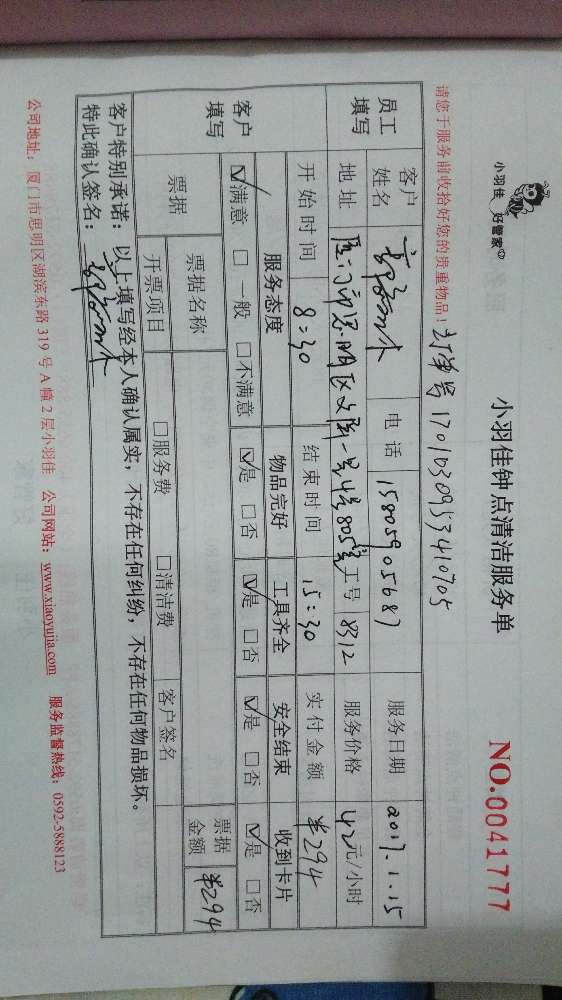 小羽佳 好管家
小羽佳钟点清洁服务单
NO.0041777
请您于服务前收拾好您的贵重物品！ 订单号 1701030953410705
员工填写 客户姓名 电话 15805905687 服务日期 2017.1.15
地址 厦门市思明区文屏一里4号805室 工号 8312 服务价格 42元/小时
客户填写 开始时间 8:30 结束时间 15:30 实付金额 ¥294
服务态度 物品完好 工具齐全 安全结束 收到卡片
☑满意 □一般 □不满意 ☑是 □否 ☑是 □否 ☑是 □否 ☑是 □否
票据 票据名称 票据金额 ¥294
开票项目 □服务费 □清洁费 客户签名
客户特别承诺：以上填写经本人确认属实，不存在任何纠纷，不存在任何物品损坏。
特此确认签名：
公司地址：厦门市思明区湖滨东路 319 号 A 幢 2 层小羽佳 公司网站：www.xiaoyujia.com 服务监督热线：0592-5888123